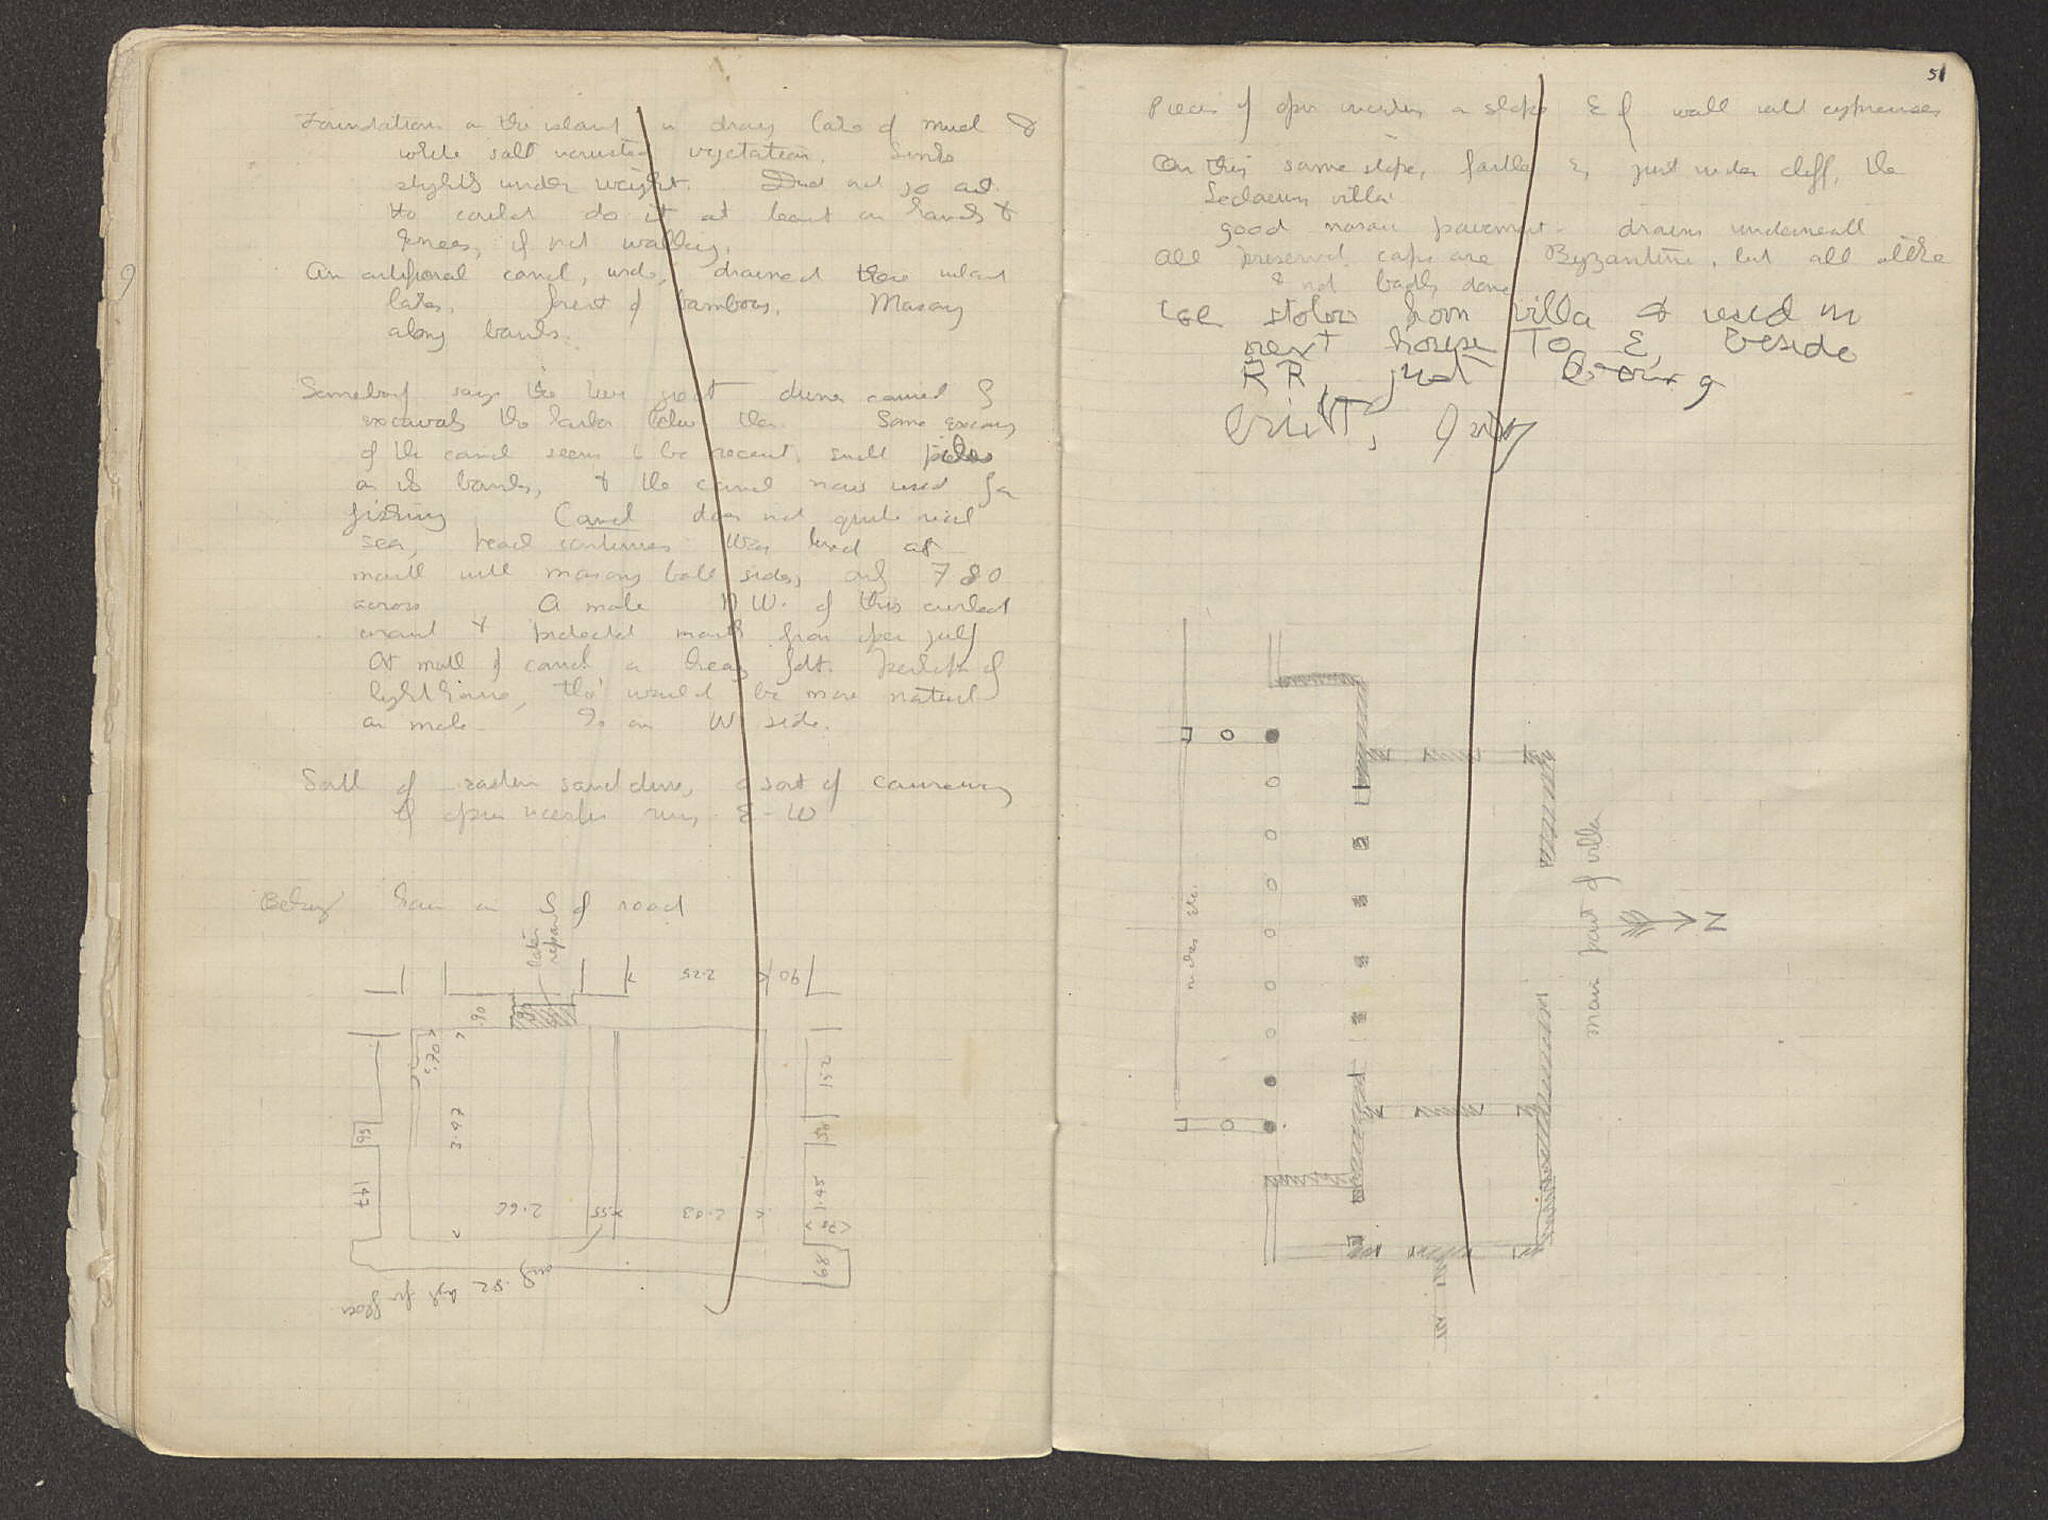 Foundations on the island in dray lake of mud &
white salt incrusted vegetation. Sinks
slightly under weight. Did not go out
tho could do it at least on hands &
knees, if not walking.
An artificial canal, wide, drained these inland
lakes. forest of bamboos. Masonry
along banks.
Somebody says the two great dunes caused by
excavating the harbor below them. Some excavs
of the canal seems to be recent. small piles
on its banks, & the canal now used for
fishing Canal does not quite reach
sea, beach continues. Was lined at
mouth with masonry both sides, only 7 80
across A mole N.W. of this curled
around & protected mouth from open gulf
At mouth of canal a heavy fdt. perhaps of
lighthouse, tho' would be more natural
on mole. Is on W side.
South of eastern sand dune, a sort of causeway
of opus incertum runs E-W
on S of road
later
repair
2.25
90
.90
.70
152
95
3.47
50
147
2.66
.55
2.03
1.45
68
only .52
hgt fr floor
51
Pieces of opus incertum on slope E of wall with cypresses
On this same slope, farther E, just under cliff, the
villa
good mosaic pavement - drains underneath
All preserved caps are Byzantine, but all alike
& not badly done
stolen from villa & used in
next house To E, beside
RR, just
niches etc.
main part of villa
N